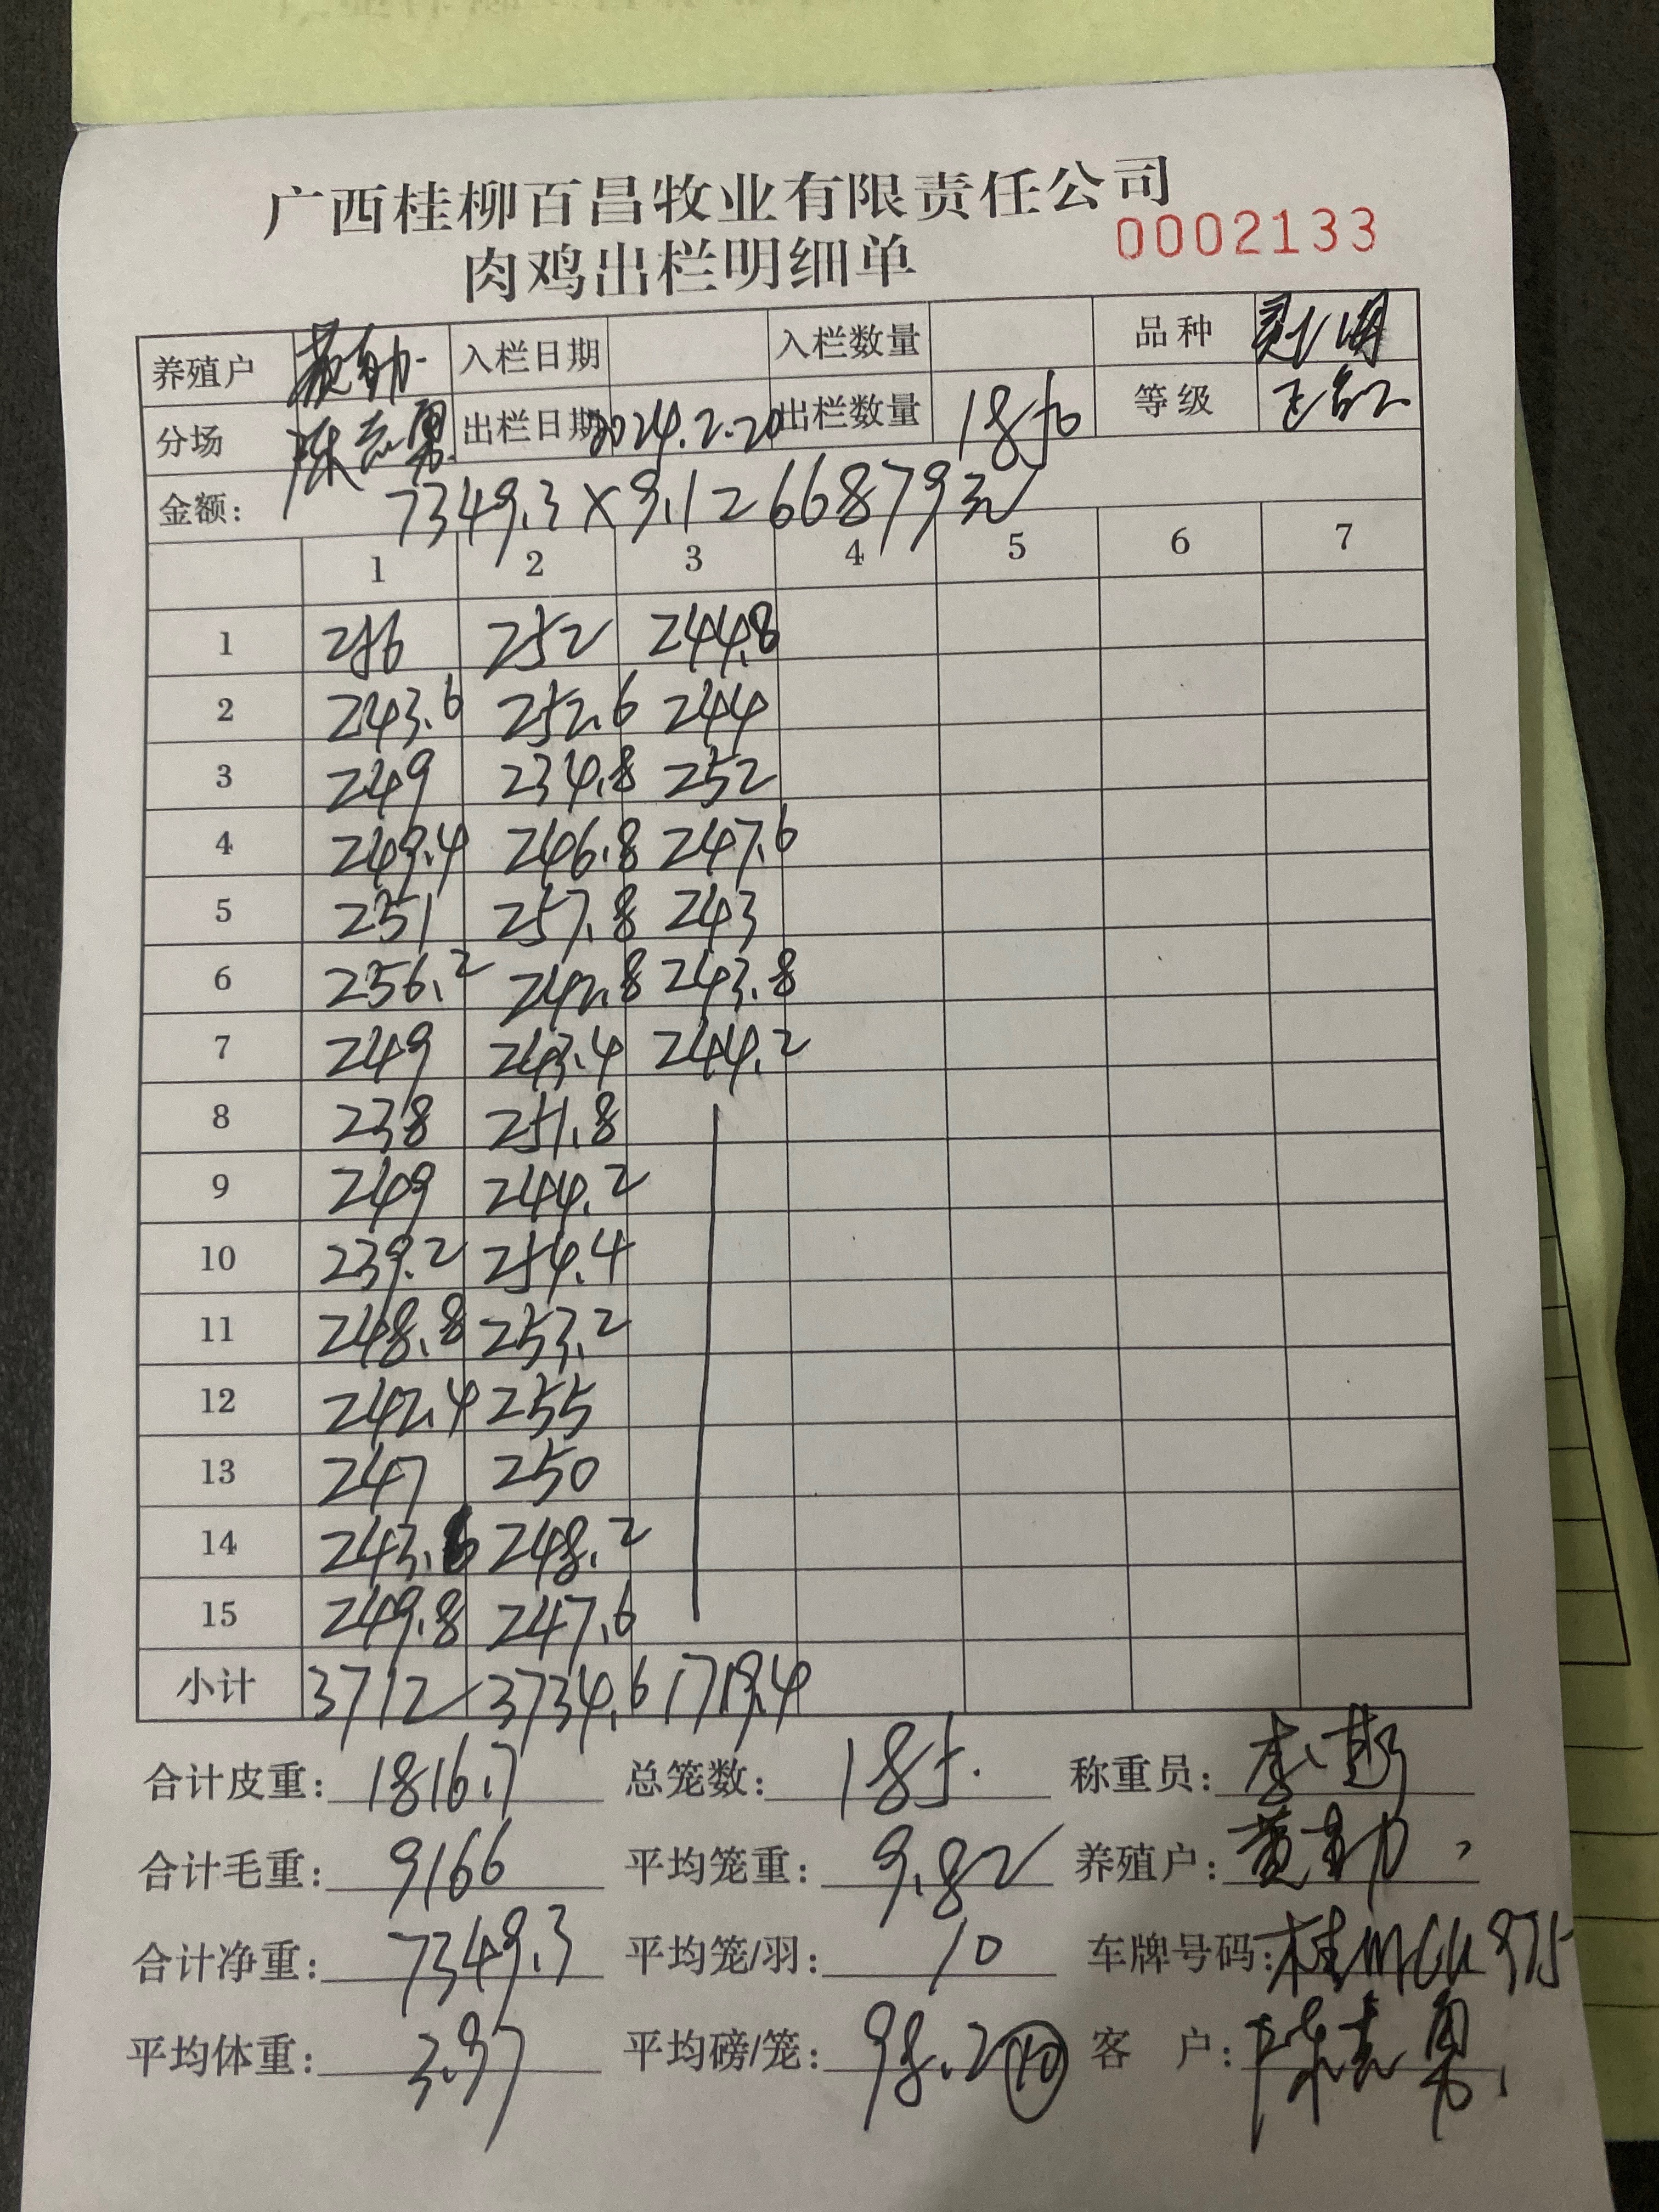 广西桂柳百昌牧业有限责任公司
肉鸡出栏明细单 0002133
养殖户 入栏日期 入栏数量 品种
分场 陈志勇 出栏日期 2024.2.20 出栏数量 1850 等级
金额: 7349.3×9.1 = 66879元
1 2 3 4 5 6 7
1 256 252 244.8
2 243.6 252.6 244
3 249 234.8 252
4 249.4 246.8 247.6
5 251 257.8 243
6 256.2 242.8 243.8
7 249 243.4 244.2
8 238 251.8
9 249 244.2
10 239.2 254.4
11 248.8 253.2
12 242.4 255
13 247 250
14 243.6 248.2
15 249.8 247.6
小计 3712 3734.6 1719.4
合计皮重: 1816.7 总笼数: 185. 称重员:
合计毛重: 9166 平均笼重: 9.82 养殖户:
合计净重: 7349.3 平均笼/羽: 10 车牌号码:
平均体重: 3.97 平均磅/笼: 98.2 客 户: 陈志勇